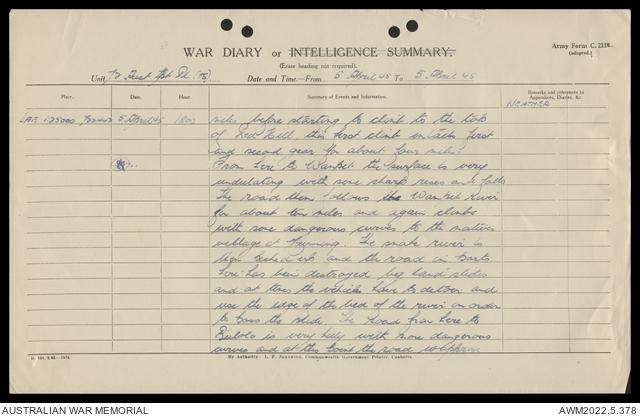 WAR DIARY or INTELLIGENCE SUMMARY.
Army Form C. 2118.
(adapted.)
(Erase heading not required).
Unit
Date and Time—From 5 April 45 To 5 April 45
Place.
Date.
Hour.
Summary of Events and Information.
Remarks and references to Appendices, Diaries, &c.
WEATHER
5 April 45 1800 miles before starting to climb to the top
of Hill, this first climb entails first
and second gear for about four miles.
From here to Wampit the surface is very
undulating with some sharp rises and falls
The road then follows the Wampit River
for about ten miles and again climbs
with some dangerous curves to the native
village at The snake river is
and the road in parts
here has been destroyed by land slides
and at times the vehicles have to deliver and
use the edge of the bed of the river in order
to pass the slide. The Road from here to
Bulolo is very hilly with more dangerous
curves and at this point the road
By Authority: L. F. Johnston, Commonwealth Government Printer, Canberra.
AUSTRALIAN WAR MEMORIAL
AWM2022.5.378